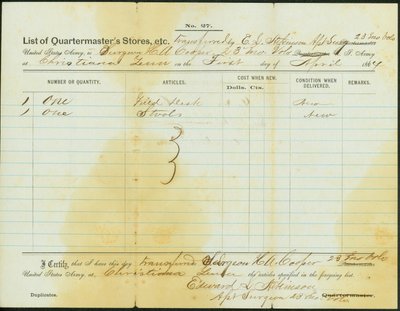 No. 27.
List of Quartermaster's Stores, etc. Transferred by E. L. Atkinson Apt Surg 23 Iwo Vols
United States Army, to Surgeon H. A. Cooper 23 Iwo Vols U. S. Army
at Christiana Tenn on the First day of April 1864
NUMBER OR QUANTITY. ARTICLES. COST WHEN NEW. CONDITION WHEN DELIVERED. REMARKS.
Dolls. Cts.
1 One Field Desk New
1 One Stools New
I Certify, that I have this day transferred Surgeon H. A. Cooper 23 Iwo Vols
United States Army, at Christiana Tenn the articles specified in the foregoing list.
Edward L. Atkinson
Duplicates. Apt Surgeon 23 Iwo Vols Quartermaster.